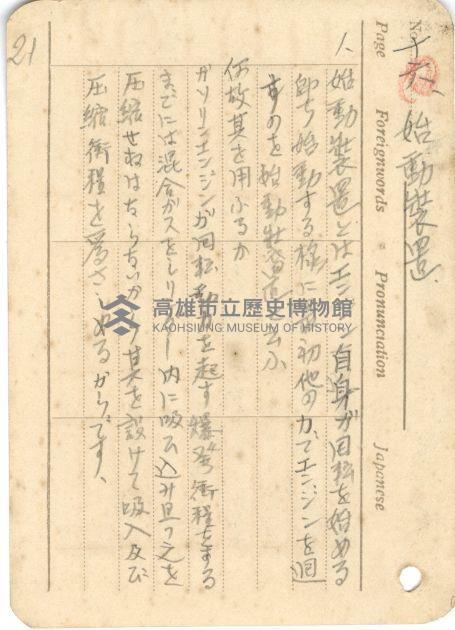 No.
Page Foreignwords Pronunciation Japanese
21
始動装置
1、始動装置とはエンジン自身が回転を始める
即ち始動する様に最初他の力でエンジンを廻
すものを始動装置と云ふ
何故其を用ふるか
ガソリンエンジンが回転 を起す爆発衝程をする
までには混合ガスをシリンダー内に吸ひ込み且つ之を
圧縮せねばならないから其を設けて吸入及び
圧縮衝程を為さしめるからです、
高雄市立歷史博物館
KAOHSIUNG MUSEUM OF HISTORY